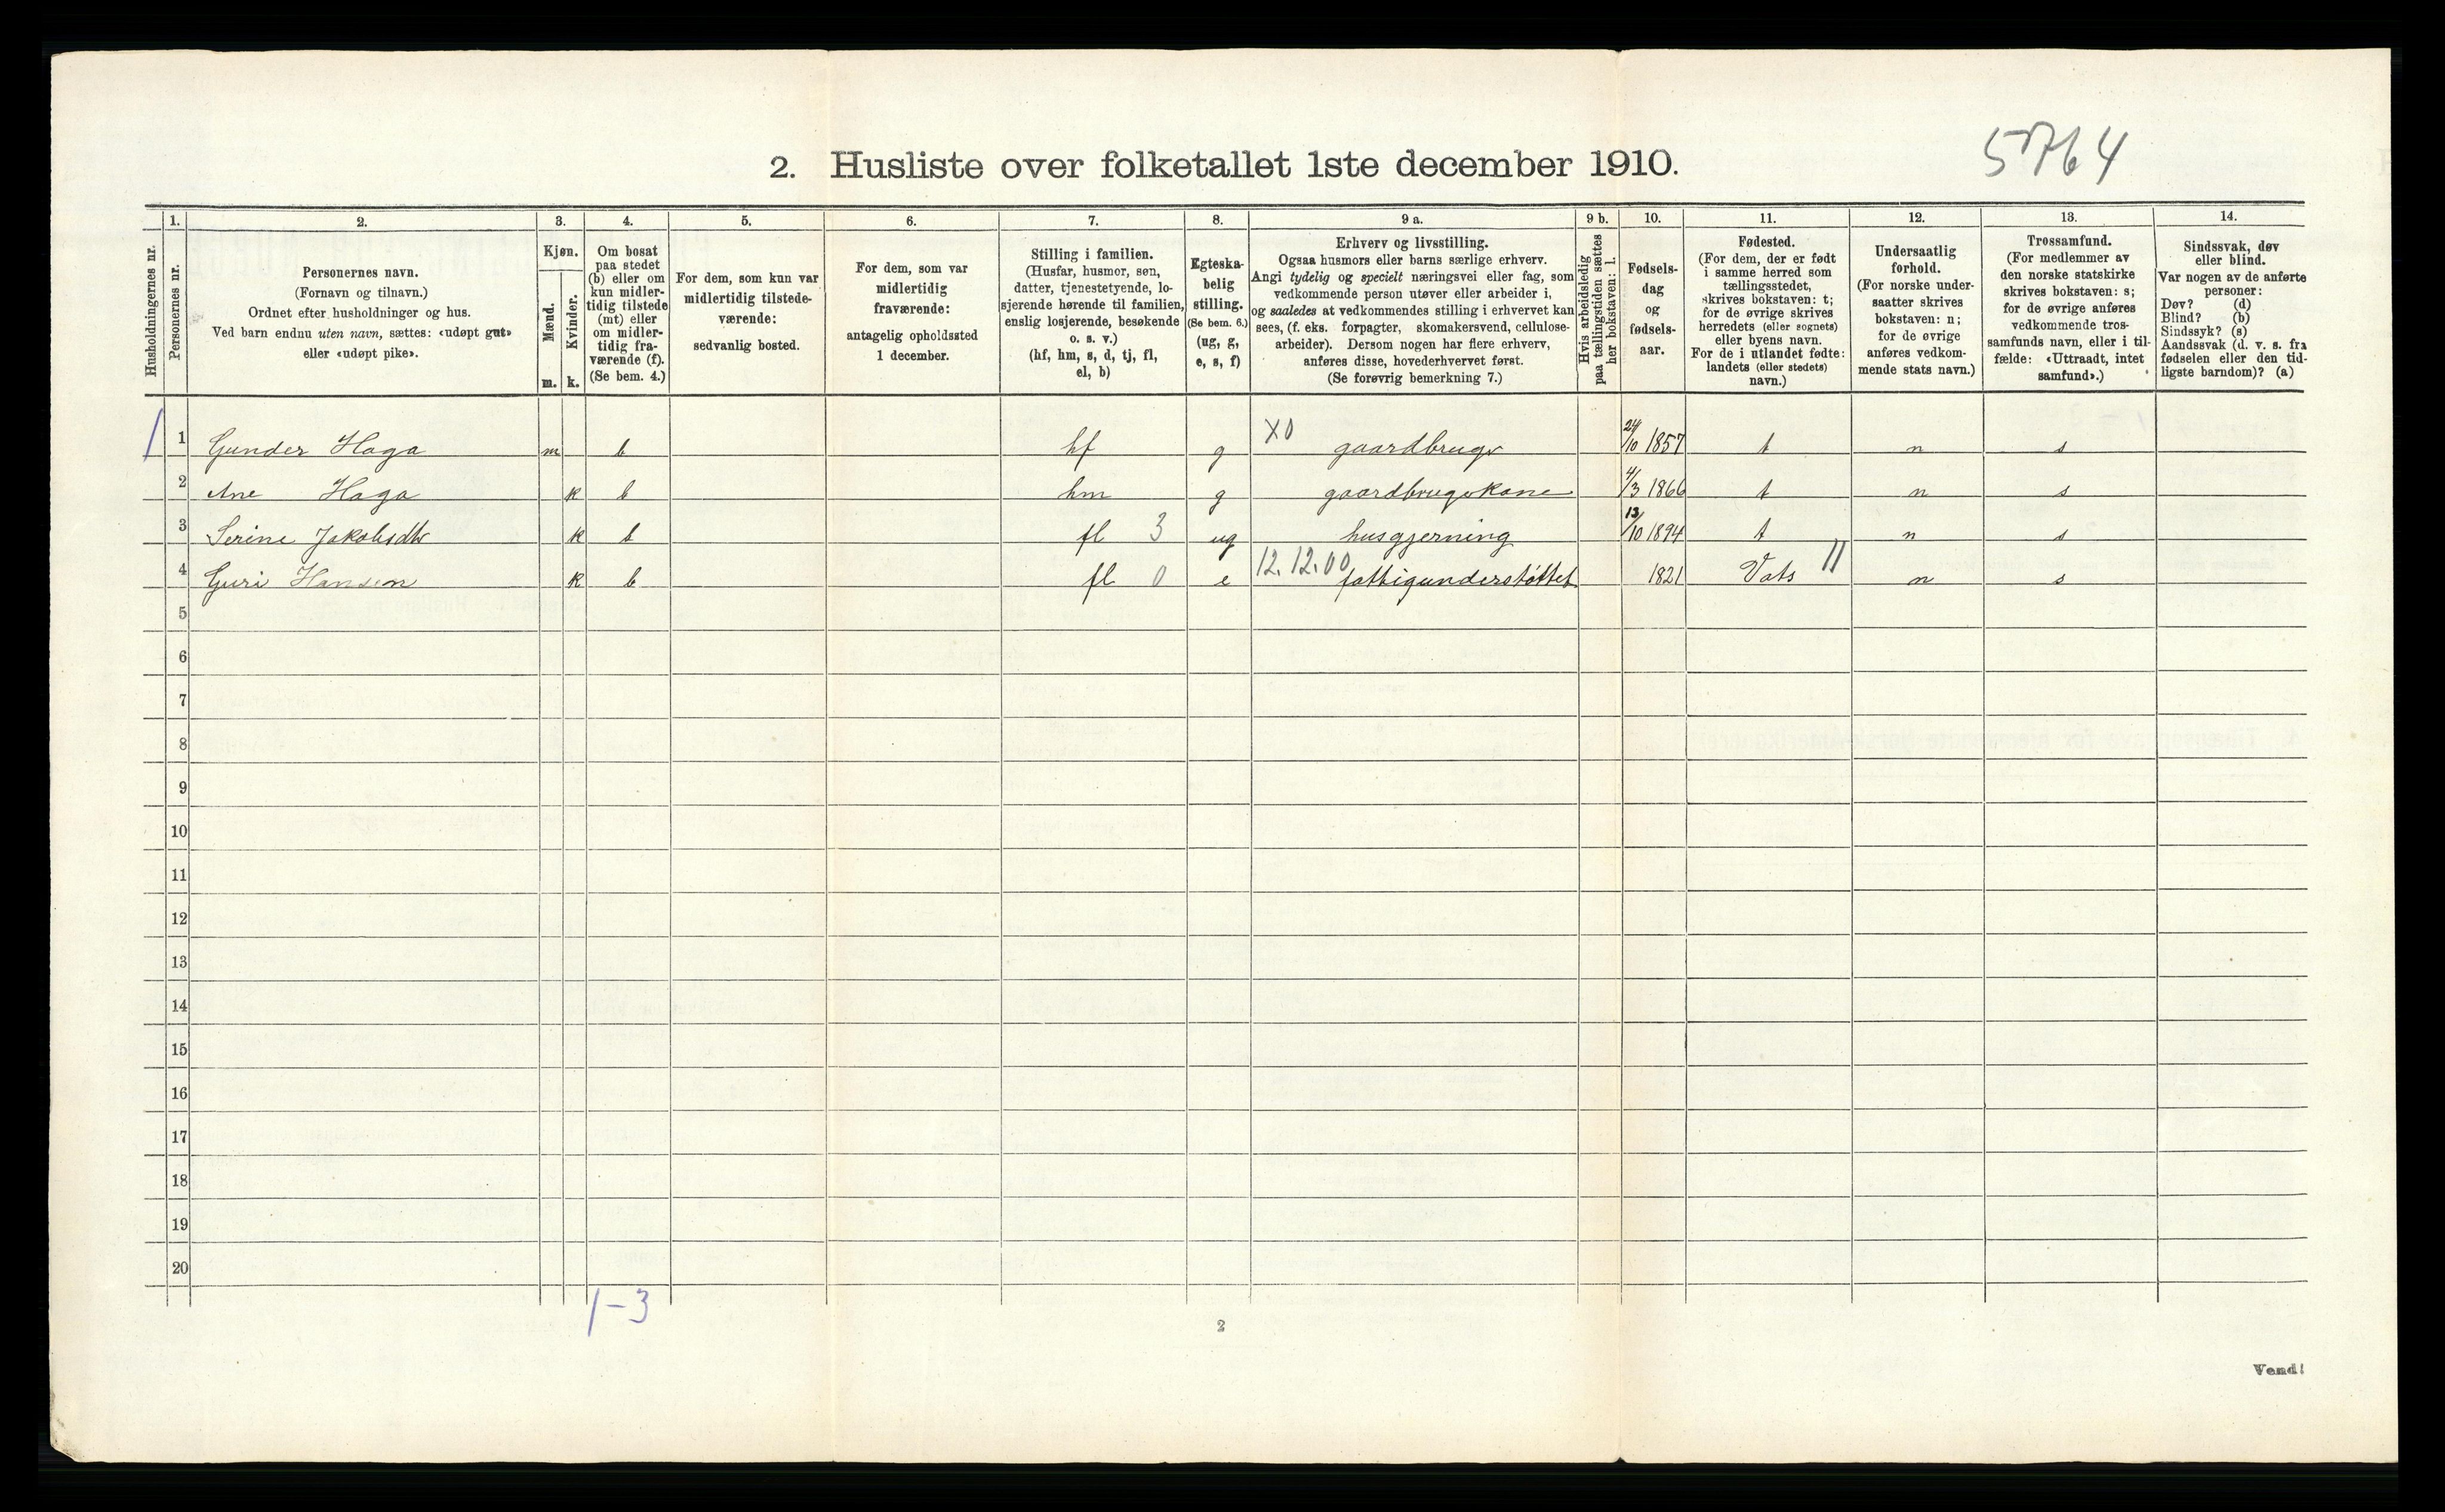 5764
2. Husliste over folketallet 1ste december 1910.
1. 2. 3. 4. 5. 6. 7. 8. 9 a. 9 b. 10. 11. 12. 13. 14.
Husholdningernes nr.
Personernes nr.
Personernes navn.
(Fornavn og tilnavn.)
Ordnet efter husholdninger og hus.
Ved barn endnu uten navn, sættes: «udøpt gut»
eller «udøpt pike».
Kjøn.
Mænd.
Kvinder.
m. k.
Om bosat
paa stedet
(b) eller om
kun midler-
tidig tilstede
(mt) eller
om midler-
tidig fra-
værende (f).
(Se bem. 4.)
For dem, som kun var
midlertidig tilstede-
værende:
sedvanlig bosted.
For dem, som var
midlertidig
fraværende:
antagelig opholdssted
1 december.
Stilling i familien.
(Husfar, husmor, søn,
datter, tjenestetyende, lo-
sjerende hørende til familien,
enslig losjerende, besøkende
o. s. v.)
(hf, hm, s, d, tj, fl,
el, b)
Egteska-
belig
stilling.
(Se bem. 6.)
(ug, g,
e, s, f)
Erhverv og livsstilling.
Ogsaa husmors eller barns særlige erhverv.
Angi tydelig og specielt næringsvei eller fag, som
vedkommende person utøver eller arbeider i,
og saaledes at vedkommendes stilling i erhvervet kan
sees, (f. eks. forpagter, skomakersvend, cellulose-
arbeider). Dersom nogen har flere erhverv,
anføres disse, hovederhvervet først.
(Se forøvrig bemerkning 7.)
Hvis arbeidsledig
paa tællingstiden sættes
her bokstaven: l.
Fødsels-
dag
og
fødsels-
aar.
Fødested.
(For dem, der er født
i samme herred som
tællingsstedet,
skrives bokstaven: t;
for de øvrige skrives
herredets (eller sognets)
eller byens navn.
For de i utlandet fødte:
landets (eller stedets)
navn.)
Undersaatlig
forhold.
(For norske under-
saatter skrives
bokstaven: n;
for de øvrige
anføres vedkom-
mende stats navn.)
Trossamfund.
(For medlemmer av
den norske statskirke
skrives bokstaven: s;
for de øvrige anføres
vedkommende tros-
samfunds navn, eller i til-
fælde: «Uttraadt, intet
samfund».)
Sindssvak, døv
eller blind.
Var nogen av de anførte
personer:
Døv? (d)
Blind? (b)
Sindssyk? (s)
Aandssvak (d. v. s. fra
fødselen eller den tid-
ligste barndom)? (a)
1 1 Gunder Haga m b hf g X0 gaardbruger 24/10 1857 t n s
2 Ane Haga k b hm g gaardbrugerkone 4/3 1866 t n s
3 Serine Jakobsdtr k b fl 3 ug husgjerning 13/10 1894 t n s
4 Guri Hansen k b fl 0 e 12.12.00 fattigunderstøttet 1821 Vats 11 n s
5
6
7
8
9
10
11
12
13
14
15
16
17
18
19
20
1-3
2
Vend!